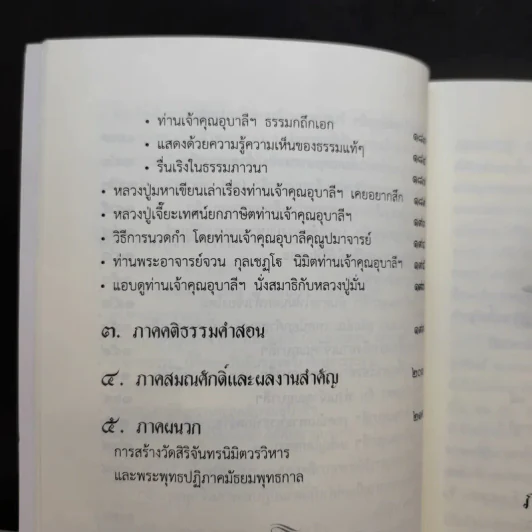 • ท่านเจ้าคุณอุบาลีฯ ธรรมกถึกเอก
• แสดงด้วยความรู้ความเห็นของธรรมแท้ๆ
• รื่นเริงในธรรมภาวนา
• หลวงปู่มหาเขียนเล่าเรื่องท่านเจ้าคุณอุบาลีฯ เคยอยากสึก
• หลวงปู่เจี๊ยะเทศน์ยกภาษิตท่านเจ้าคุณอุบาลีฯ
• วิธีการนวดกำ โดยท่านเจ้าคุณอุบาลีคุณูปมาจารย์
• ท่านพระอาจารย์จวน กุลเชฏฺโฐ นิมิตท่านเจ้าคุณอุบาลีฯ
• แอบดูท่านเจ้าคุณอุบาลีฯ นั่งสมาธิกับหลวงปู่มั่น
๓. ภาคคติธรรมคำสอน
๔. ภาคสมณศักดิ์และผลงานสำคัญ
๕. ภาคผนวก
การสร้างวัดสิริจันทรนิมิตวรวิหาร
และพระพุทธปฏิภาคมัธยมพุทธกาล